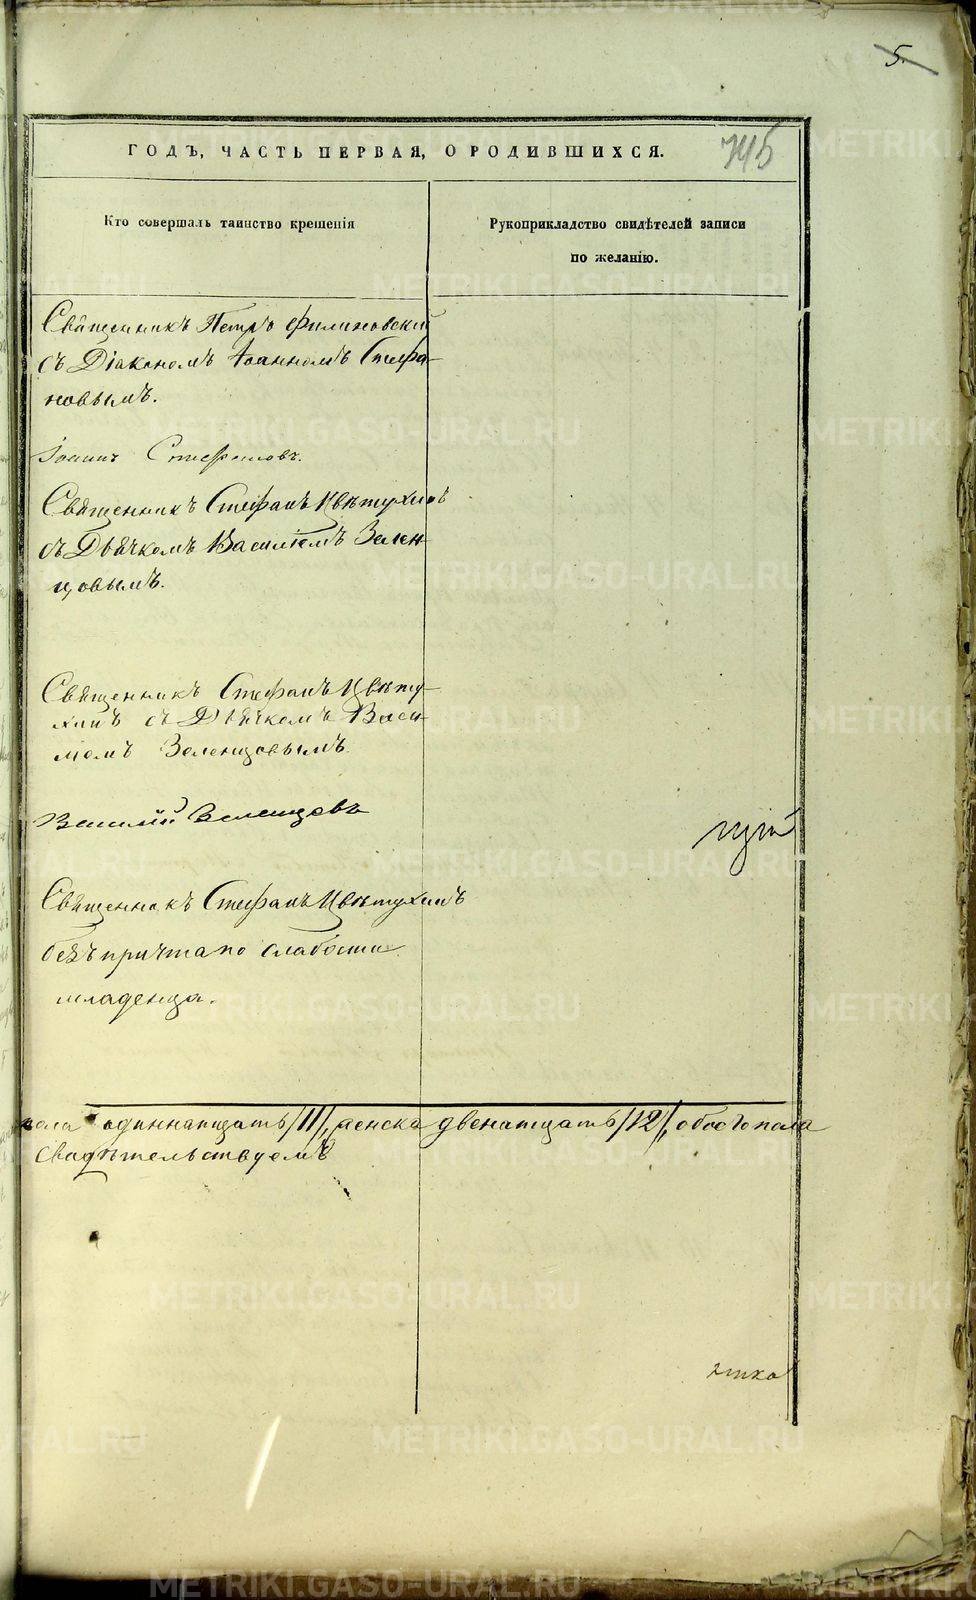 5.
ГОДЪ, ЧАСТЬ ПЕРВАЯ, О РОДИВШИХСЯ.
745
Кто совершалъ таинство крещенія
Рукоприкладство свидѣтелей записи
по желанію.
Священникъ Петръ Филиновскій
съ Діакономъ Іоанномъ Стефа-
новымъ.
Іоаннъ Стефановъ.
Священникъ Стефанъ Цвѣтухинъ
съ Дьячкомъ Василіемъ Зелен-
цовымъ.
Священникъ Стефанъ Цвѣту-
хинъ съ Дьячкомъ Васи-
лiемъ Зеленцовымъ
Василій Зеленцовъ
Священникъ Стефанъ Цвѣтухинъ
безъ причта по слабости
младенца.
пола одиннатцать /11/, женска двенатцать /12/, обоего пола
Свидѣтельствуемъ
METRIKI.GASO-URAL.RU